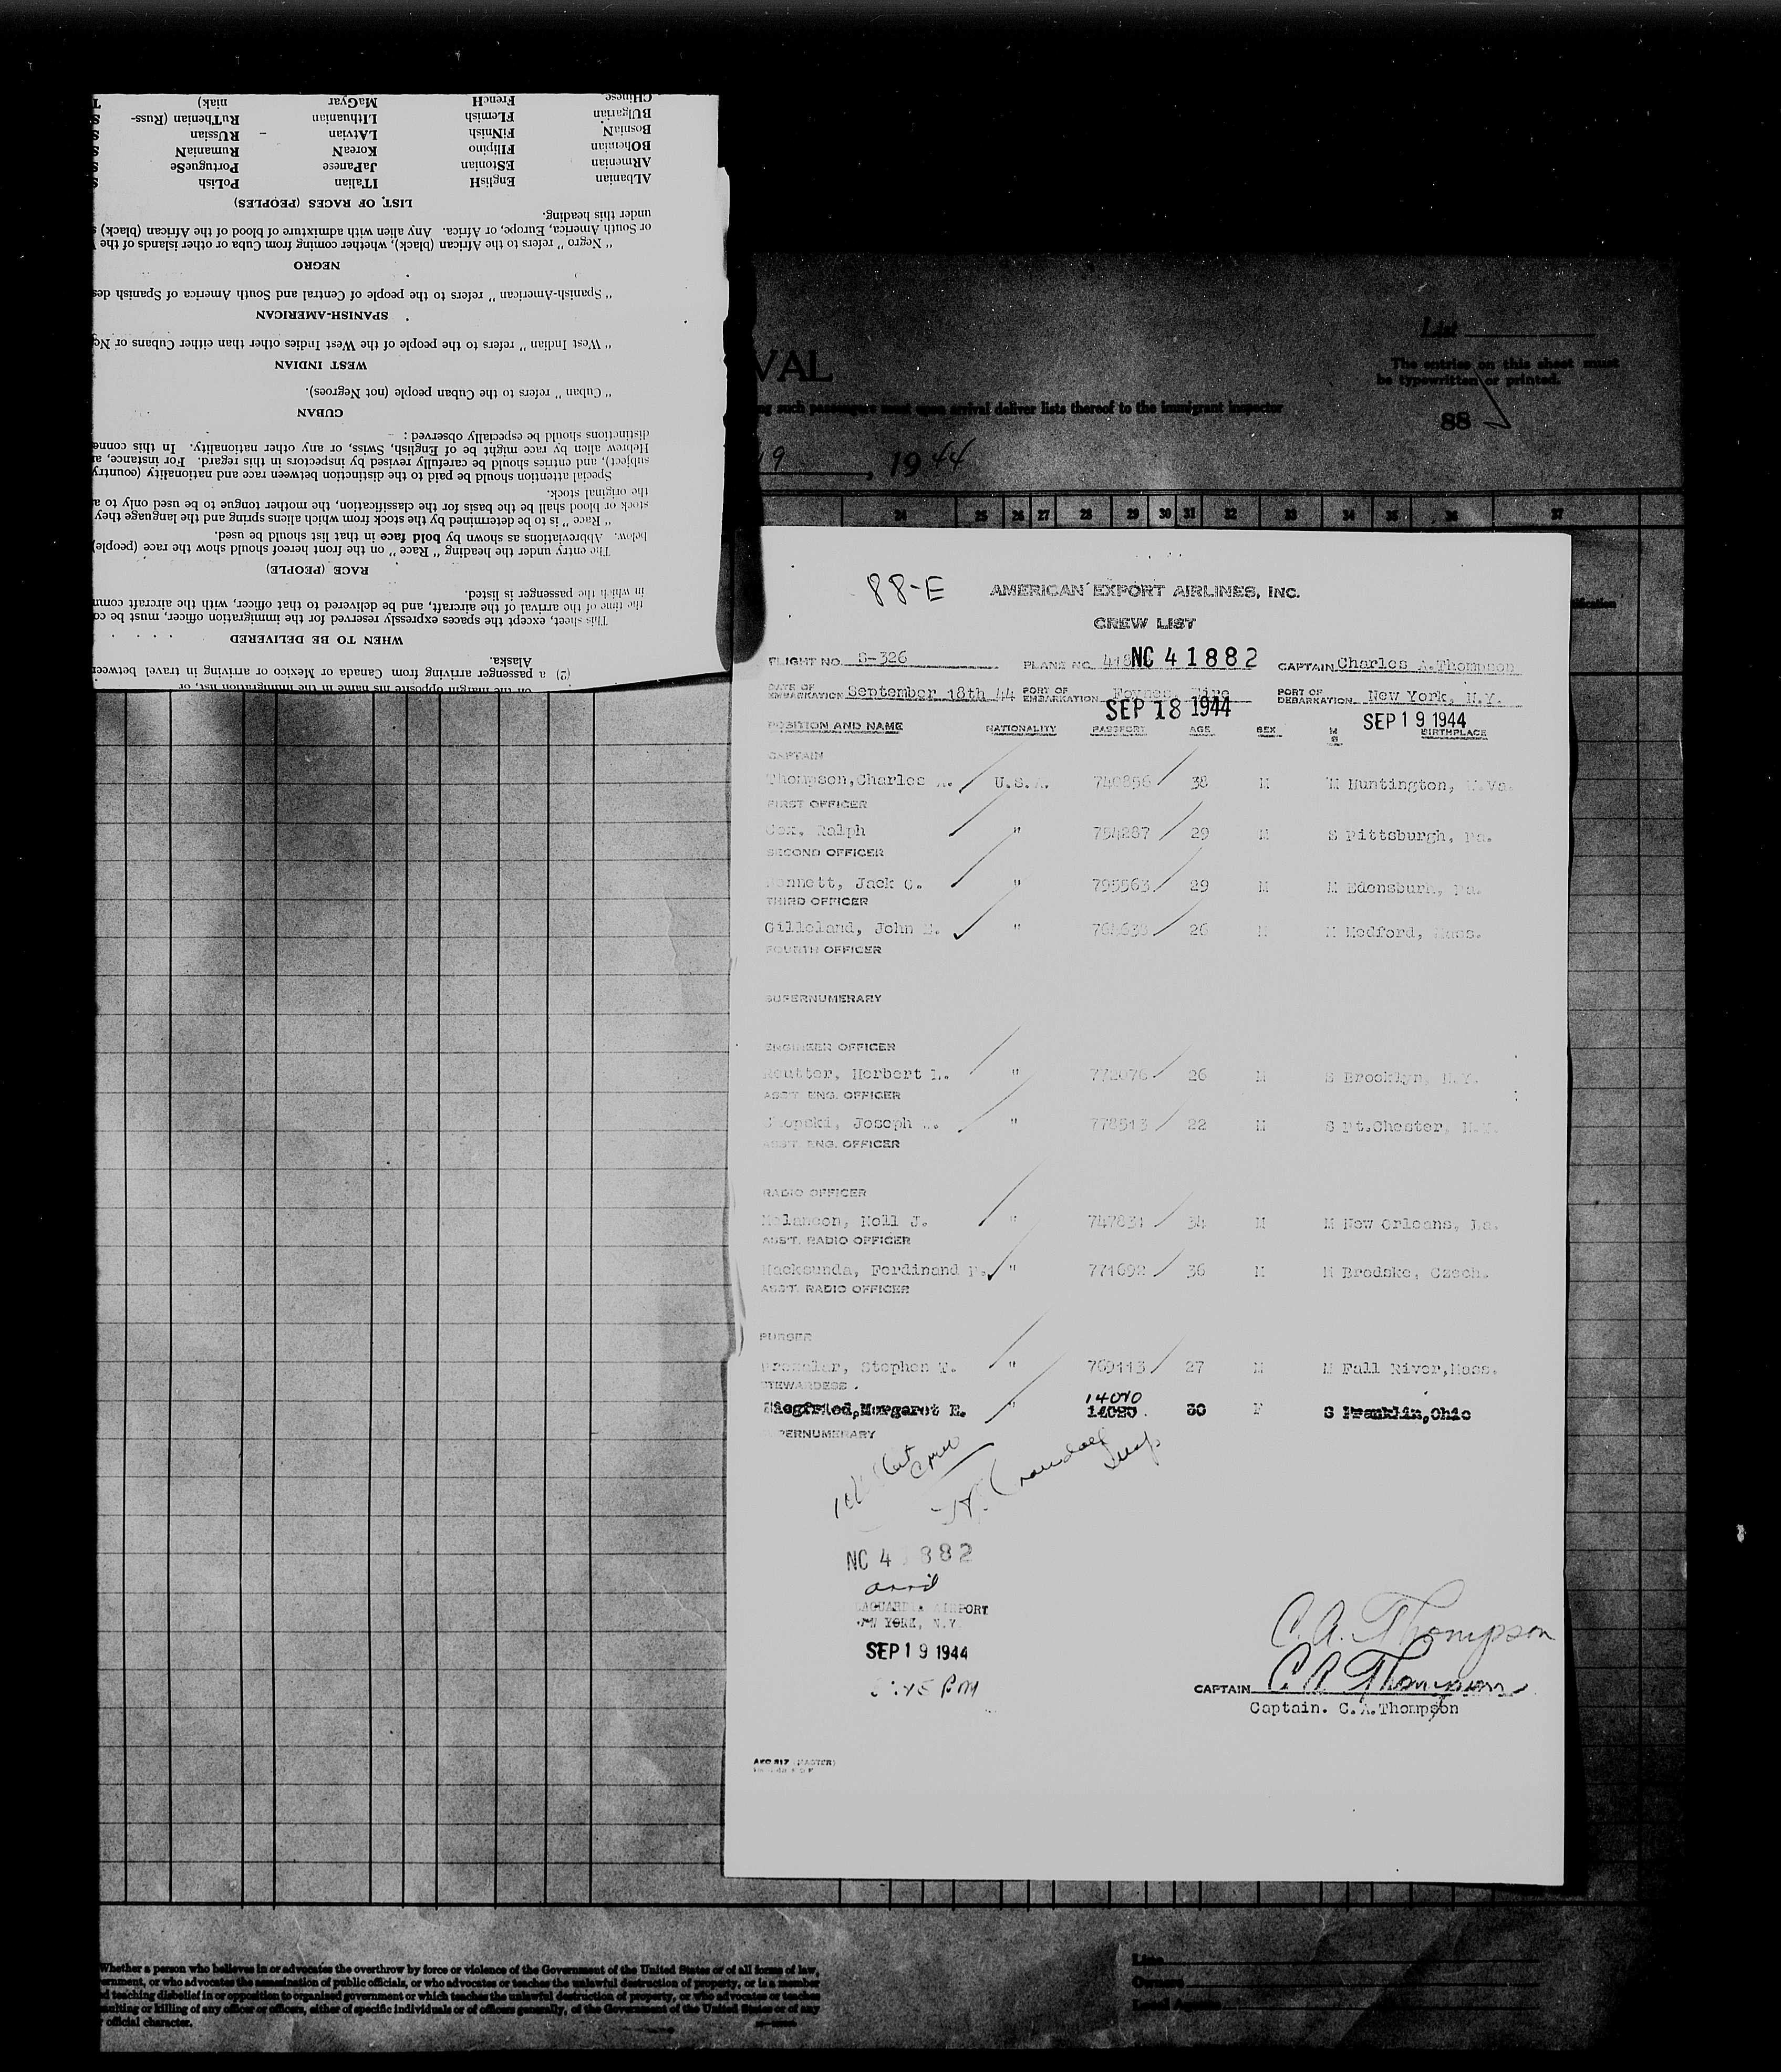 (2) a passenger arriving from Canada or Mexico or arriving in travel between
Alaska.
WHEN TO BE DELIVERED
This sheet, except the spaces expressly reserved for the immigration officer, must be
the time of the arrival of the aircraft, and be delivered to that officer, with the aircraft
in which the passenger is listed.
RACE (PEOPLE)
The entry under the heading "Race" on the front hereof should show the race (people)
below. Abbreviations as shown by bold face in that list should be used.
"Race" is to be determined by the stock from which aliens spring and the language they
stock or blood shall be the basis for the classification, the mother tongue to be used only to
the original stock.
Special attention should be paid to the distinction between race and nationality (country
subject), and entries should be carefully revised by inspectors in this regard. For instance,
Hebrew alien by race might be of English, Swiss, or any other nationality. In this
distinctions should be especially observed:
CUBAN
"Cuban" refers to the Cuban people (not Negroes).
WEST INDIAN
"West Indian" refers to the people of the West Indies other than either Cubans or
SPANISH-AMERICAN
"Spanish-American" refers to the people of Central and South America of Spanish
NEGRO
"Negro" refers to the African (black), whether coming from Cuba or other islands of the
or South America, Europe, or Africa. Any alien with admixture of blood of the African (black)
under this heading.
LIST OF RACES (PEOPLES)
ALbanian EnglisH ITalian PoLish
ARmenian EStonian JaPanese PortugueSe
BOhemian FIlipino KoreaN RumaniaN
BosniaN FiNnish LAtvian RUssian
BUlgarian FLemish LIthuanian RuThenian (Russ-
CHinese FrencH MaGyar niak)
VAL
List
The entries on this sheet must
be typewritten or printed.
88
such passengers must upon arrival deliver lists thereof to the immigrant inspector
19, 1944
24 25 26 27 28 29 30 31 32 33 34 35 36 37
88-E
AMERICAN EXPORT AIRLINES, INC.
CREW LIST
FLIGHT NO. S-326 PLANE NO. 418 NC 41882 CAPTAIN Charles A.Thompson
DATE OF EMBARKATION September 18th 44 PORT OF EMBARKATION Foynes, Eire PORT OF DEBARKATION New York, N.Y.
SEP 18 1944 SEP 19 1944
POSITION AND NAME NATIONALITY PASSPORT AGE SEX M S BIRTHPLACE
CAPTAIN
Thompson,Charles A. U.S.A. 740856 38 M M Huntington, W.Va.
FIRST OFFICER
Cox, Ralph " 754287 29 M S Pittsburgh, Pa.
SECOND OFFICER
Bennett, Jack O. " 795563 29 M M Edensburn, Pa.
THIRD OFFICER
Gilleland, John E. " 26 M M Medford, Mass.
FOURTH OFFICER
SUPERNUMERARY
ENGINEER OFFICER
Reutter, Herbert " 772076 26 M S Brooklyn, N.Y.
ASS'T ENG. OFFICER
Joseph " 778513 22 M S Pt.Chester, N.Y.
ASS'T. ENG. OFFICER
RADIO OFFICER
Melancon, Noll J. " 747831 34 M M New Orleans, La.
ASS'T. RADIO OFFICER
Ferdinand " 771692 36 M M Brodske, Czech.
ASS'T. RADIO OFFICER
PURSER
Stephen T. " 769113 27 M M Fall River,Mass.
STEWARDESS
14010
Siegfried,Margaret E. " 14080 30 F S Franklin,Ohio
SUPERNUMERARY
Crew
H. Crandall
Insp
NC 41882
arrd
LAGUARDIA AIRPORT
NEW YORK, N.Y.
SEP 19 1944
:45 PM
C. A. Thompson
CAPTAIN C A Thompson
Captain. C.A.Thompson
AEC 817 (MASTER)
Whether a person who believes in or advocates the overthrow by force or violence of the Government of the United States or of all forms of law,
or who advocates the assassination of public officials, or who advocates or teaches the unlawful destruction of property, or is a member
teaching disbelief in or opposition to organized government or which teaches the unlawful destruction of property, or who advocates or teaches
or killing of any officer or officers, either of specific individuals or of officers generally, of the Government of the United States or of any
official character.
Line
Owners
Local Agents